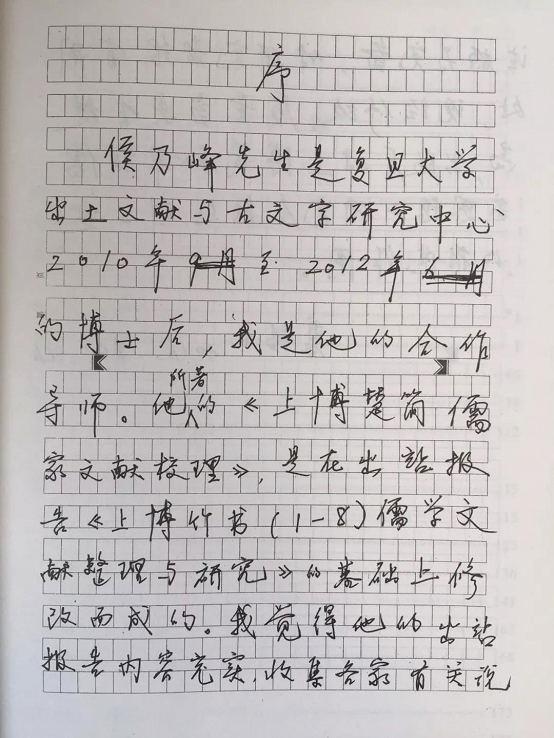 序
侯乃峰先生是复旦大学
出土文献与古文字研究中心
2010年9月至2012年6月
的博士后，我是他的合作
所著
导师。他的《上博楚简儒
家文献校理》，是在出站报
告《上博竹书(1-8)儒学文
献整理与研究》的基础上修
改而成的。我觉得他的出站
报告内容充实，收集各家有关说